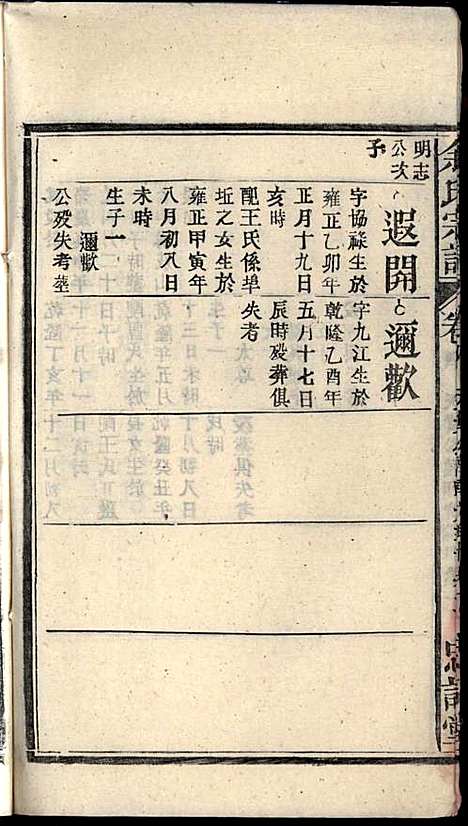 明志
公次
子
遐開
字協祿生於
雍正乙卯年
正月十九日
亥時
配王氏係埠
坵之女生於
雍正甲寅年
八月初八日
未時
生子一
邇歡
公歿失考塟
邇歡
字九江生於
乾隆乙酉年
五月十七日
辰時歿葬俱
失考
余氏宗譜
卷
忠詒堂